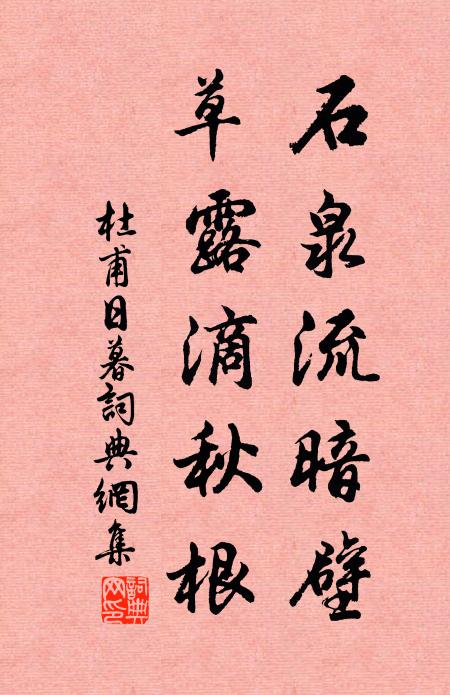 石泉流暗壁
草露滴秋根
杜甫日暮詞典網集
詞典網印